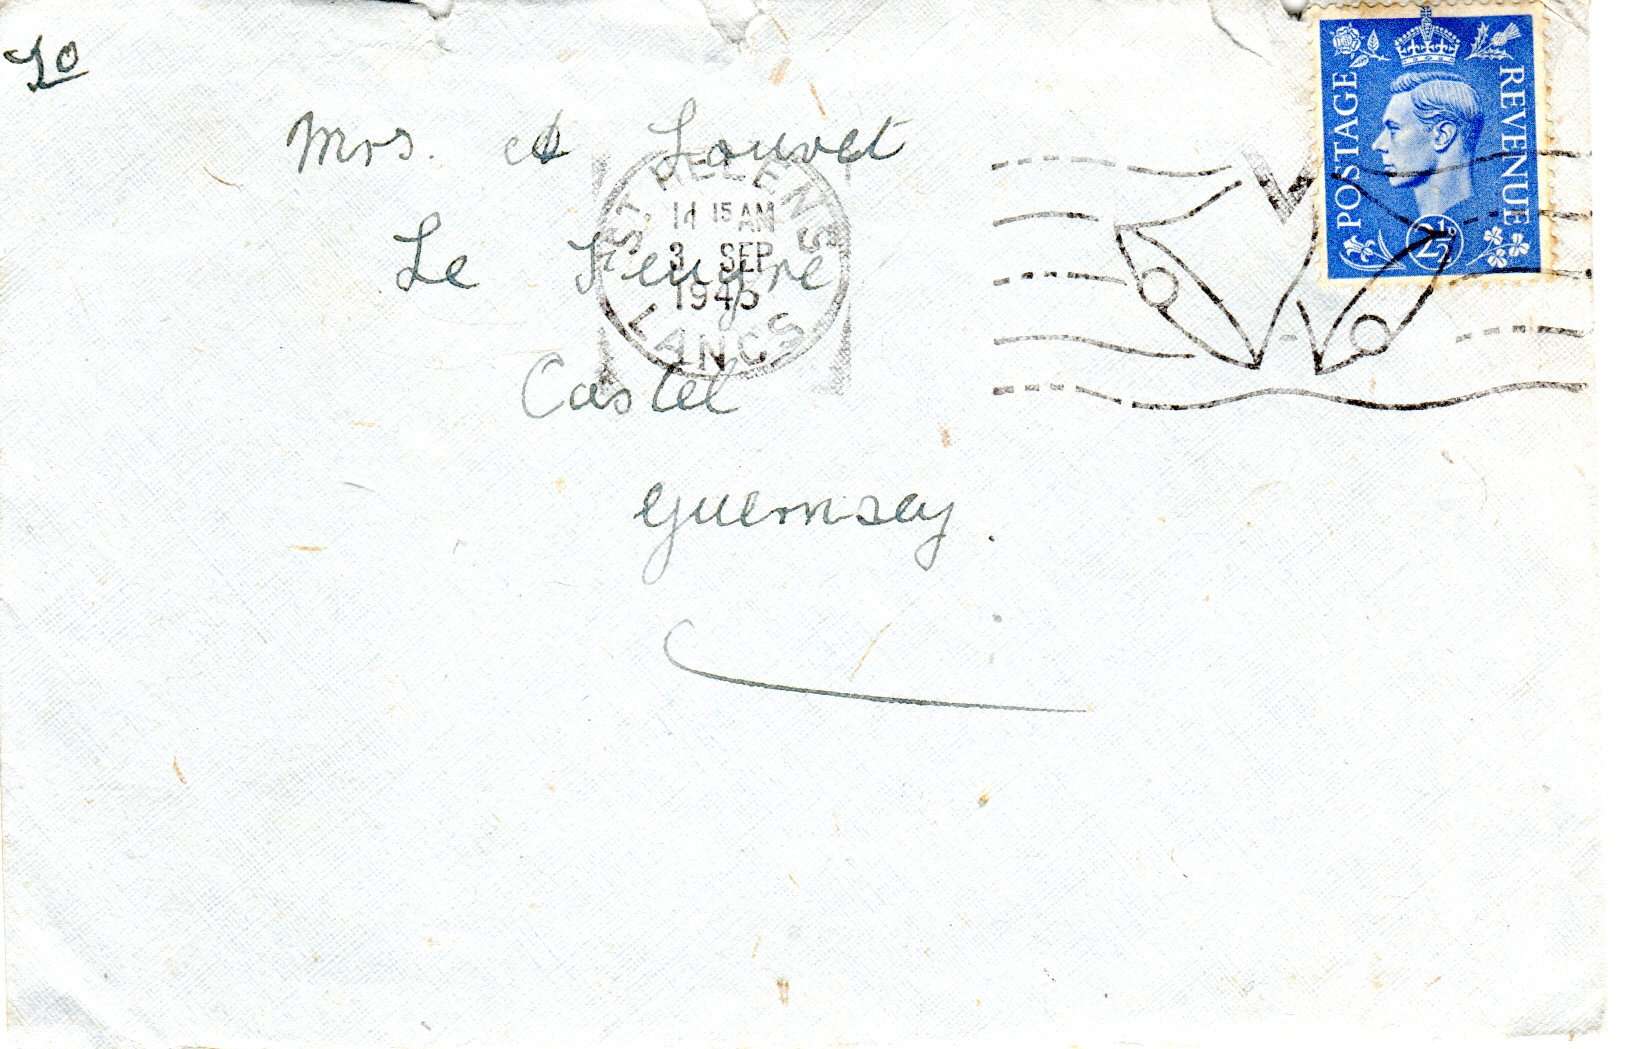 To
Mrs. A Louvet
Le
Castel
Guernsey.
ST. HELENS
11 15 AM
3 SEP
1945
LANCS
POSTAGE
REVENUE
2½D